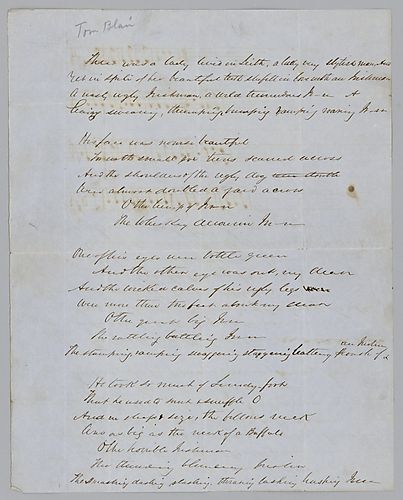 Tom Blair
There was a lady lived in Leith, a lady very stylish man, And
Yet in spite of her beautiful teeth she fell in love with an Irishman
A nasty ugly Irishman, a wild tremendous Irishman A
tearing swearing, thumping bumping ramping roaring Irishman
His face was nowise beautiful
For with small pox twas scarred across
And the shoulders of the ugly dog
Were almost doubled a yard across
O the lump of Irishman
The Whiskey devouring Irishman
One of his eyes was bottle green
And the other eye was out, my dear
And the wicked calves of his ugly legs
Were more than two feet about my dear
O the great big Irishman
The rattling battling Irishman
The stamping ramping swaggering staggering leathering swash of an Irishman
He took so much of Lundy foot
That he used to snort & snuffle O
And in shape & size, the fellows neck
Was as big as the neck of a Buffalo
O the horrible Irishman
The thundering blundering Irishman
The smashing dashing slashing, thrashing lashing hashing Irishman